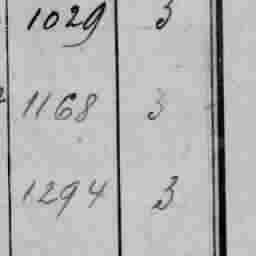 1029 3
1168 3
1294 3